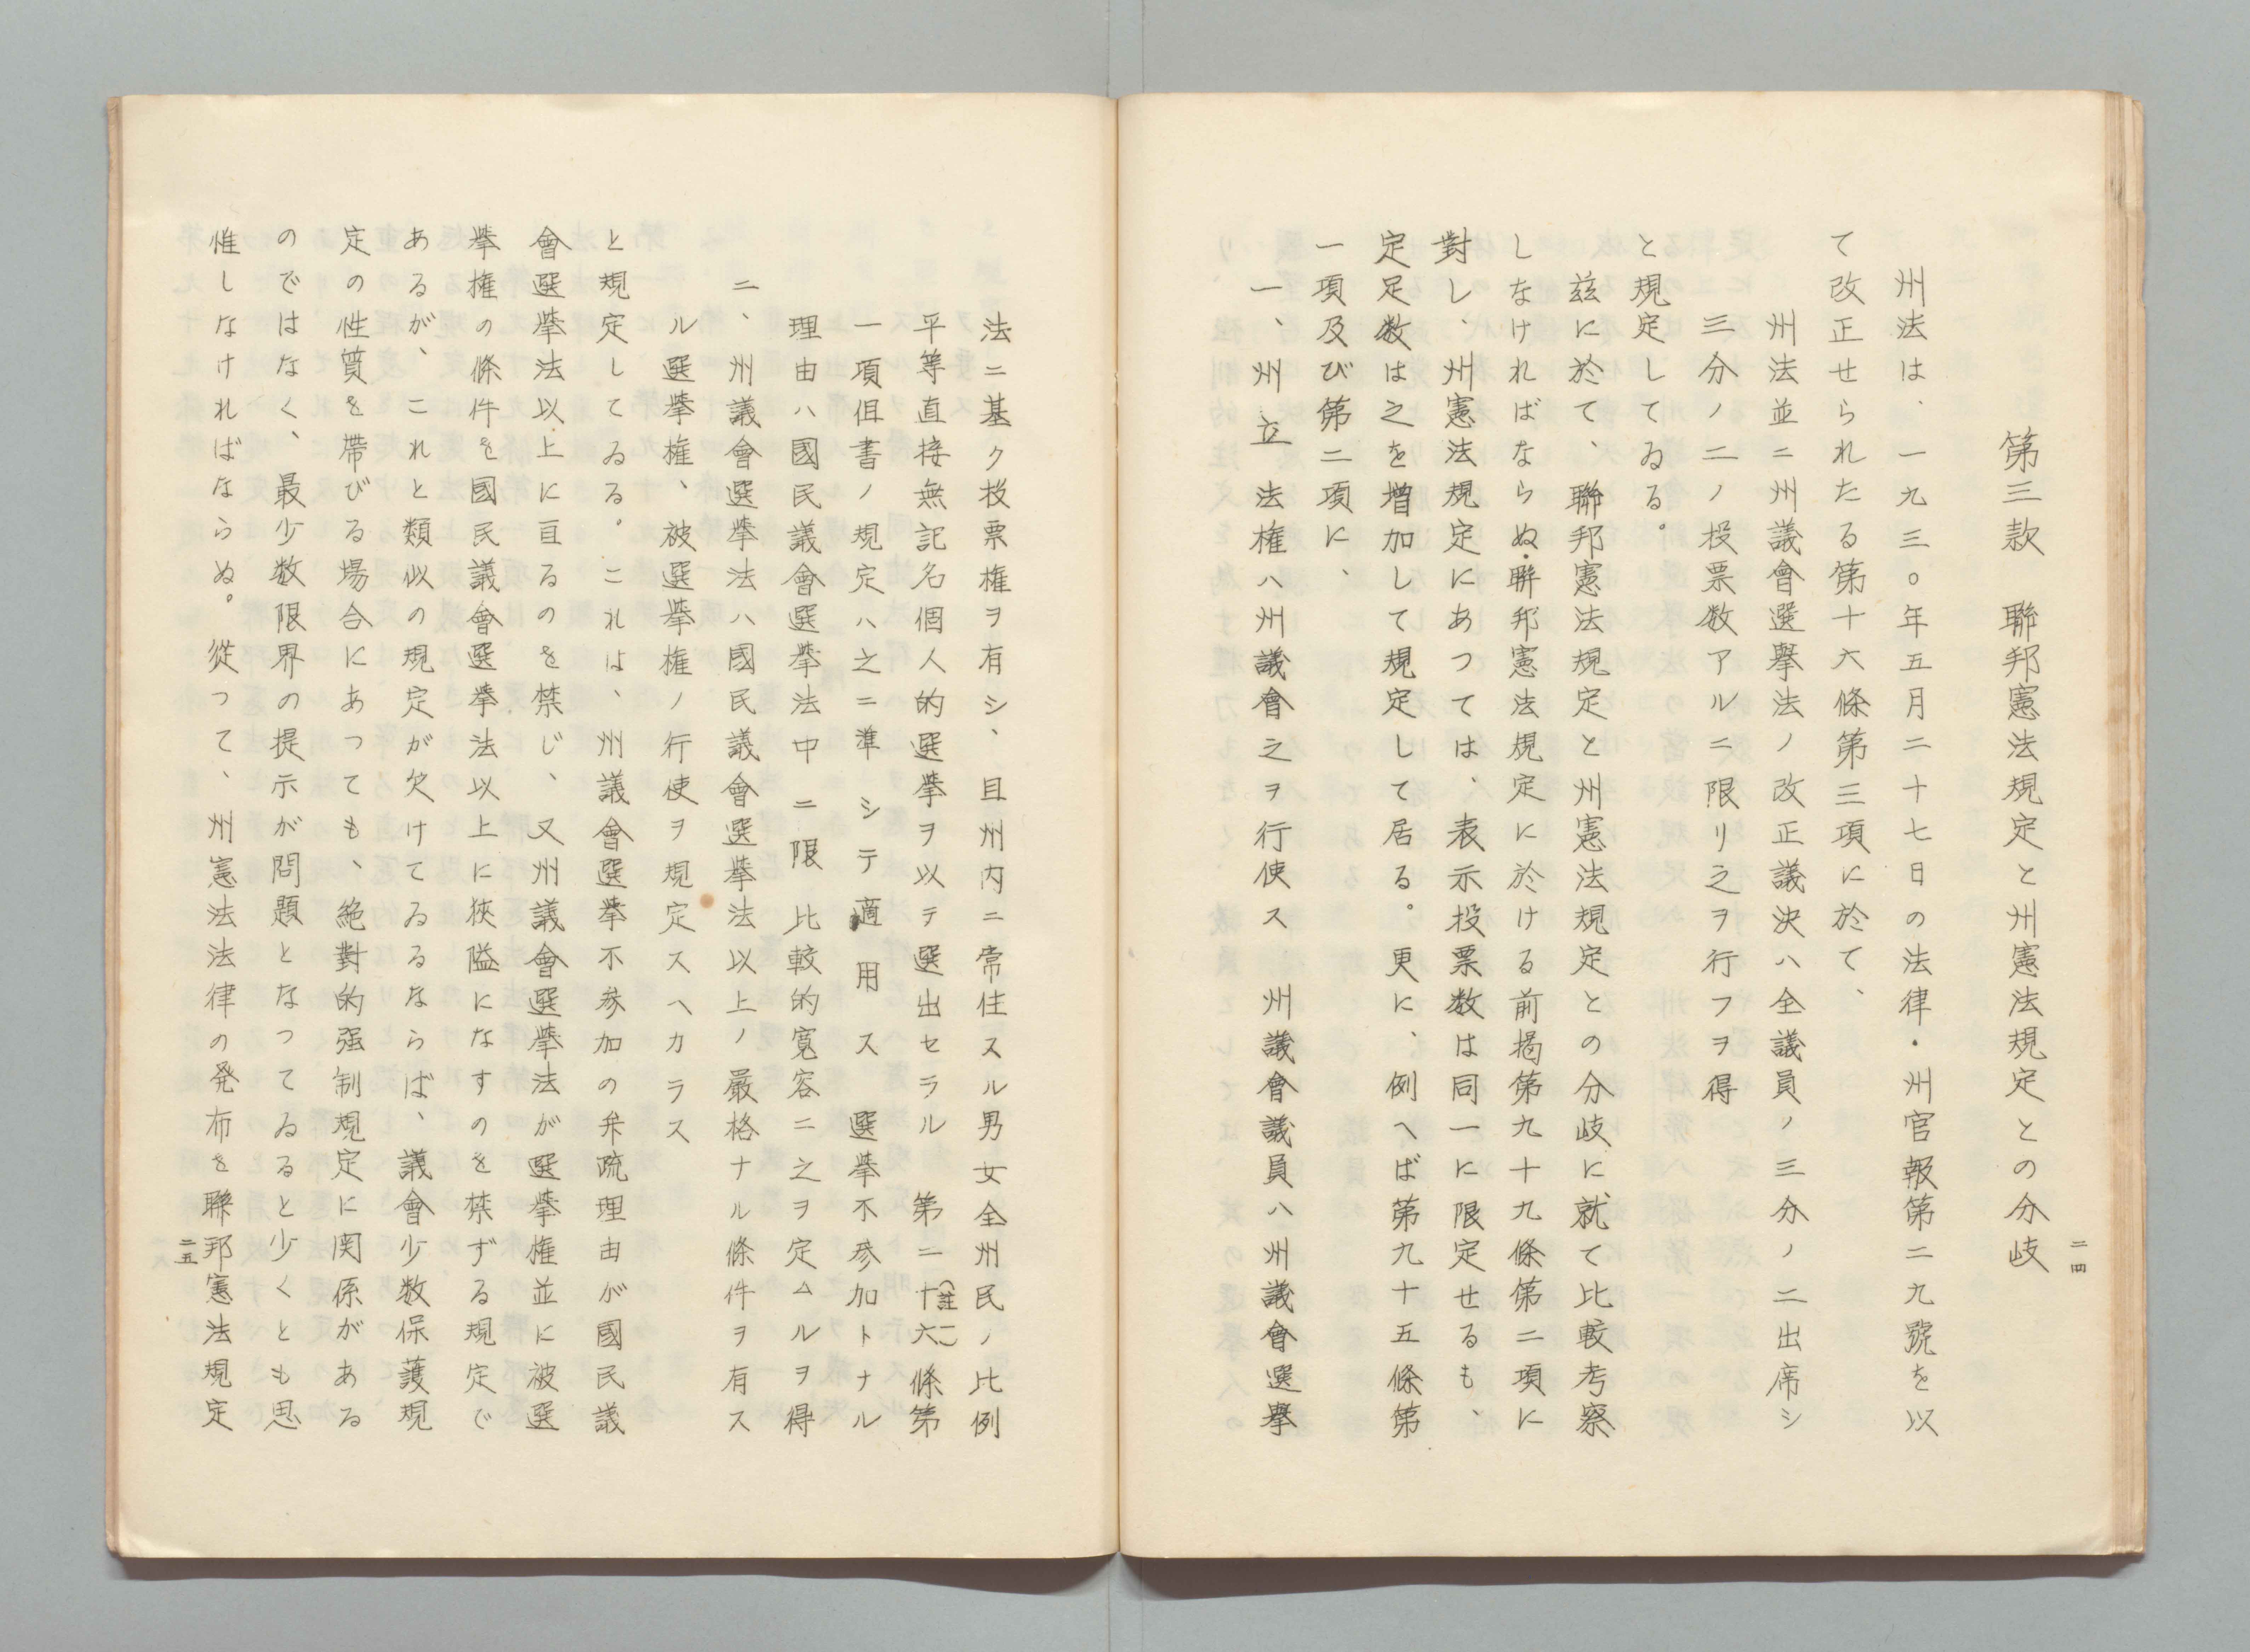 二四
第三款　聯邦憲法規定と州憲法規定との分岐
州法は、一九三〇年五月二十七日の法律・州官報第二九號を以
て改正せられたる第十六條第三項に於て、
州法並ニ州議會選擧法ノ改正議決ハ全議員ノ三分ノ二出席シ
三分ノ二ノ投票数アルニ限リ之ヲ行フヲ得
と規定してゐる。
茲に於て、聯邦憲法規定と州憲法規定との分岐に就て比較考察
しなければならぬ・聯邦憲法規定に於ける前掲第九十九條第二項に
對し、州憲法規定にあつては、表示投票数は同一に限定せるも、
定足数は之を増加して規定して居る。更に、例へば第九十五條第
一項及び第二項に、
一、州立法権ハ州議會之ヲ行使ス　州議會議員ハ州議會選擧
法ニ基ク投票権ヲ有シ、且州内ニ常住スル男女全州民ノ比例
平等直接無記名個人的選挙ヲ以テ選出セラル（註一）第二十六條第
一項但書ノ規定ハ之ニ準シテ適用ス　選挙不参加トナル
理由ハ國民議會選挙法中ニ限　比較的寛容ニ之ヲ定ムルヲ得
二、州議會選挙法ハ國民議會選挙法以上ノ嚴格ナル條件ヲ有ス
ル選挙権、被選挙権ノ行使ヲ規定スヘカラス
と規定してゐる。これは、州議會選挙不参加の弁疏理由が國民議
會選挙法以上に亘るのを禁じ、又州議會選挙法が選挙権並に被選
挙権の條件を國民議會選挙法以上に狹隘になすのを禁ずる規定で
あるが、これと類似の規定が欠けてゐるならば、議會少数保護規
定の性質を帶びる場合にあつても、絶對的强制規定に関係がある
のではなく、最少数限界の提示が問題となつてゐると少くとも思
惟しなければならぬ。從つて、州憲法法律の発布を聯邦憲法規定
二五